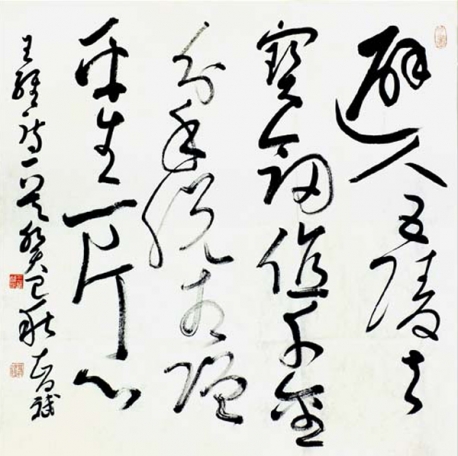 遊人五陵去
寶劍值千金
分手脱相贈
平生一片心
王維詩一首癸巳秋